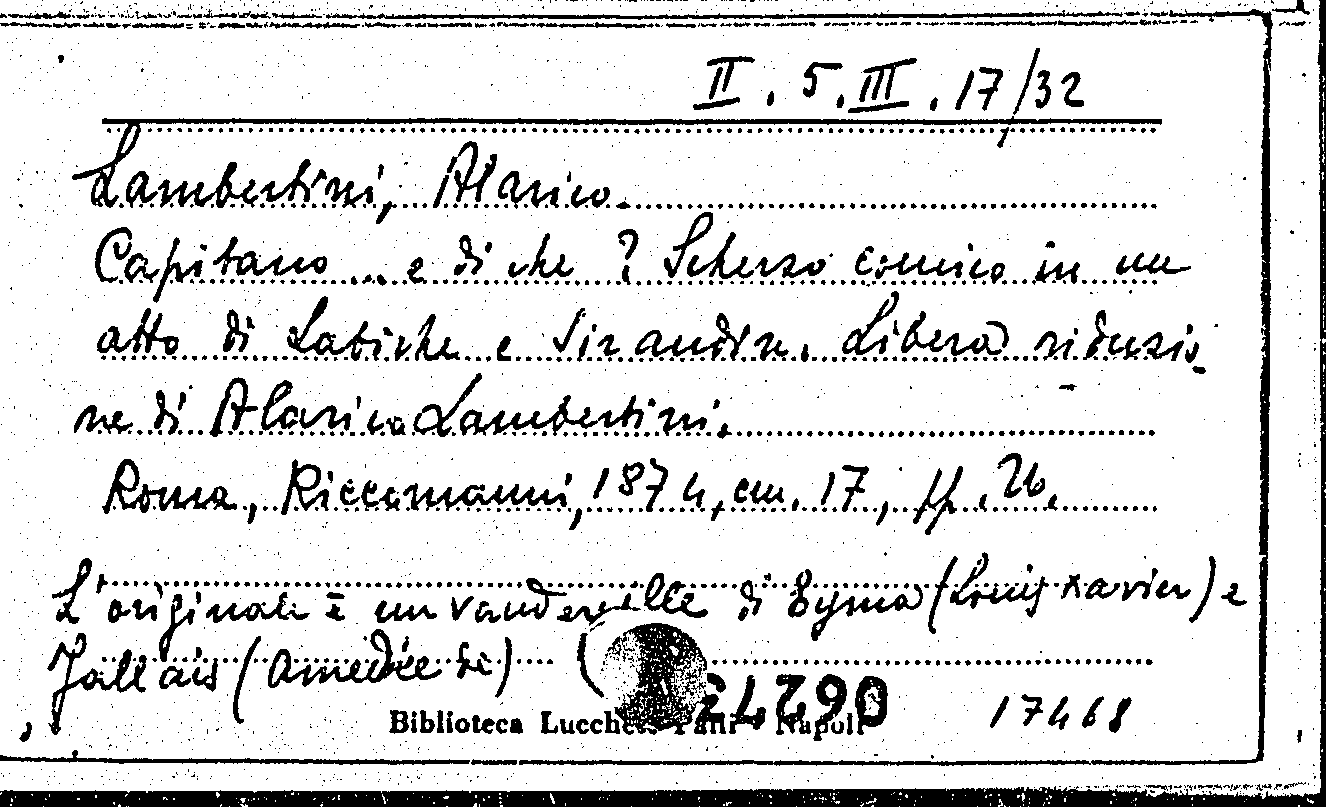 II. 5. III. 17/32
Lambertini, Alarico.
Capitano ... e di che ? Scherzo comico in un
atto di Labiche e Siraudin. Libera riduzio-
ne di Alarico Lambertini.
Roma, Riccomanni, 1874, cm. 17, pp. 26.
L'originale è un vaudeville di Eyma (Louis Xavier) e
Jallais (Amedée de) (
Biblioteca Lucchesi Palli - Napoli
17468